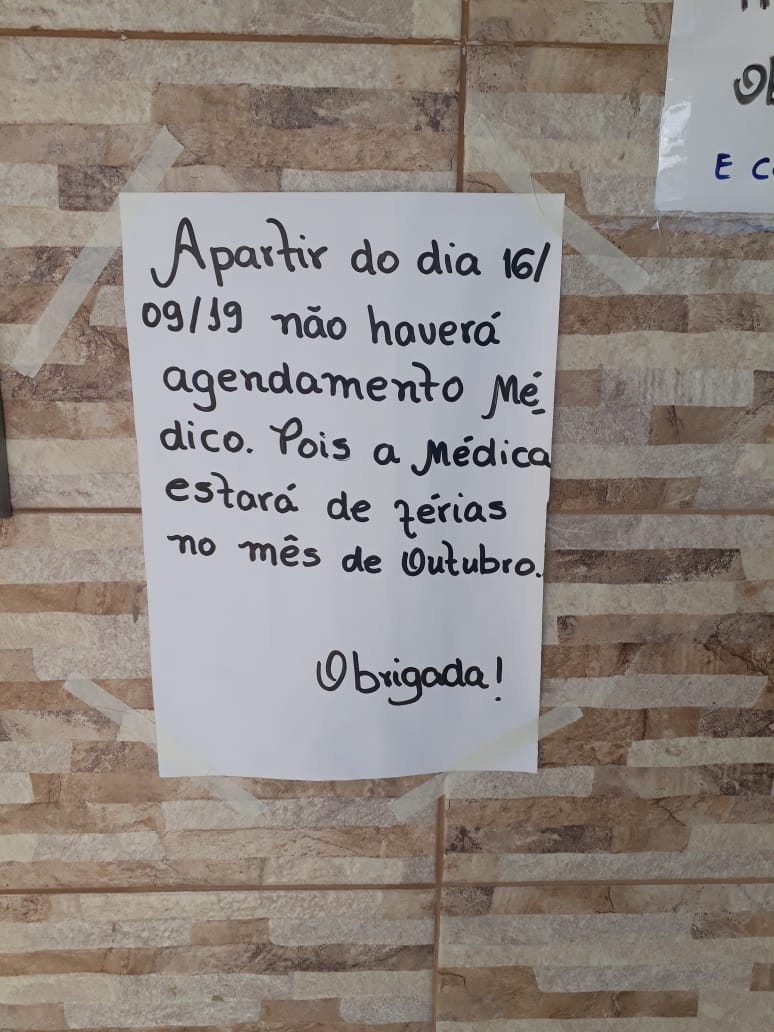 Apartir do dia 16/
09/19 não haverá
agendamento Mé
dico. Pois a Médica
estará de férias
no mês de Outubro.
Obrigada!
E